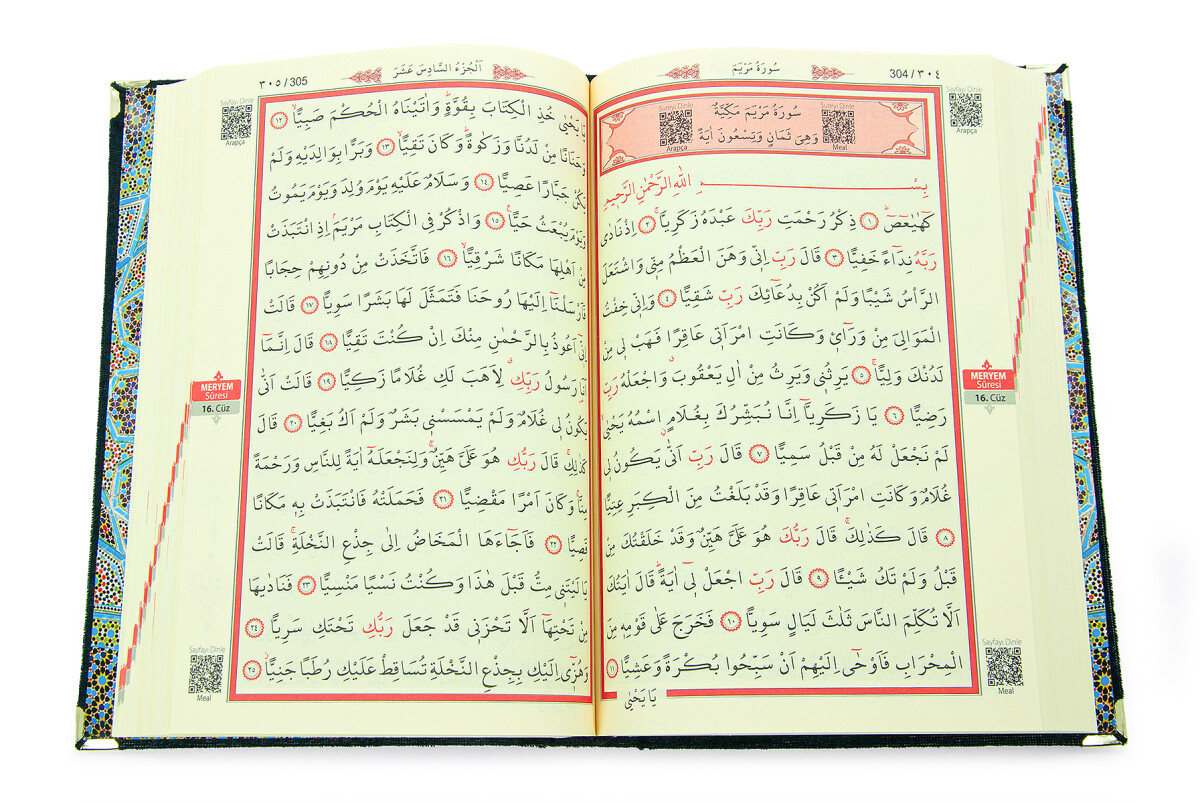 304/٣٠٤
سُورَةُ مَرْيَمَ
Sayfayı Dinle
Arapça
Sureyi Dinle
Arapça
سُورَةُ مَرْيَمَ مَكِّيَّةٌ
وَهِىَ ثَمَانٍ وَتِسْعُونَ اٰيَةً
Sureyi Dinle
Meal
بِسْــــمِ اللّٰهِ الرَّحْمٰنِ الرَّحٖيمِ
كٓهٰيٰعٓصٓ ١ ذِكْرُ رَحْمَتِ رَبِّكَ عَبْدَهُ زَكَرِيَّا ٢ اِذْ نَادٰى
رَبَّهُ نِدَٓاءً خَفِيًّا ٣ قَالَ رَبِّ اِنّٖى وَهَنَ الْعَظْمُ مِنّٖى وَاشْتَعَلَ
الرَّاْسُ شَيْبًا وَلَمْ اَكُنْ بِدُعَٓائِكَ رَبِّ شَقِيًّا ٤ وَاِنّٖى خِفْتُ
الْمَوَالِىَ مِنْ وَرَٓاءٖى وَكَانَتِ امْرَاَتٖى عَاقِرًا فَهَبْ لٖى مِنْ
لَدُنْكَ وَلِيًّا ٥ يَرِثُنٖى وَيَرِثُ مِنْ اٰلِ يَعْقُوبَ وَاجْعَلْهُ رَبِّ
رَضِيًّا ٦ يَا زَكَرِيَّٓا اِنَّا نُبَشِّرُكَ بِغُلَامٍ اسْمُهُ يَحْيٰى
لَمْ نَجْعَلْ لَهُ مِنْ قَبْلُ سَمِيًّا ٧ قَالَ رَبِّ اَنّٰى يَكُونُ لٖى
غُلَامٌ وَكَانَتِ امْرَاَتٖى عَاقِرًا وَقَدْ بَلَغْتُ مِنَ الْكِبَرِ عِتِيًّا
٨ قَالَ كَذٰلِكَ قَالَ رَبُّكَ هُوَ عَلَىَّ هَيِّنٌ وَقَدْ خَلَقْتُكَ مِنْ
قَبْلُ وَلَمْ تَكُ شَيْـًٔا ٩ قَالَ رَبِّ اجْعَلْ لٖٓى اٰيَةً قَالَ اٰيَتُكَ
اَلَّا تُكَلِّمَ النَّاسَ ثَلٰثَ لَيَالٍ سَوِيًّا ١٠ فَخَرَجَ عَلٰى قَوْمِهٖ مِنَ
الْمِحْرَابِ فَاَوْحٰٓى اِلَيْهِمْ اَنْ سَبِّحُوا بُكْرَةً وَعَشِيًّا ١١
يَا يَحْيٰى
MERYEM
Sûresi
16. Cüz
Sayfayı Dinle
Meal
٣٠٥/305
اَلْجُزْءُ السَّادِسَ عَشَرَ
Sayfayı Dinle
Arapça
يَا يَحْيٰى خُذِ الْكِتَابَ بِقُوَّةٍ وَاٰتَيْنَاهُ الْحُكْمَ صَبِيًّا ١٢
وَحَنَانًا مِنْ لَدُنَّا وَزَكٰوةً وَكَانَ تَقِيًّا ١٣ وَبَرًّا بِوَالِدَيْهِ وَلَمْ
يَكُنْ جَبَّارًا عَصِيًّا ١٤ وَسَلَامٌ عَلَيْهِ يَوْمَ وُلِدَ وَيَوْمَ يَمُوتُ
وَيَوْمَ يُبْعَثُ حَيًّا ١٥ وَاذْكُرْ فِى الْكِتَابِ مَرْيَمَ اِذِ انْتَبَذَتْ
مِنْ اَهْلِهَا مَكَانًا شَرْقِيًّا ١٦ فَاتَّخَذَتْ مِنْ دُونِهِمْ حِجَابًا
فَاَرْسَلْنَٓا اِلَيْهَا رُوحَنَا فَتَمَثَّلَ لَهَا بَشَرًا سَوِيًّا ١٧ قَالَتْ
اِنّٖٓى اَعُوذُ بِالرَّحْمٰنِ مِنْكَ اِنْ كُنْتَ تَقِيًّا ١٨ قَالَ اِنَّمَٓا
اَنَا رَسُولُ رَبِّكِ لِاَهَبَ لَكِ غُلَامًا زَكِيًّا ١٩ قَالَتْ اَنّٰى
يَكُونُ لٖى غُلَامٌ وَلَمْ يَمْسَسْنٖى بَشَرٌ وَلَمْ اَكُ بَغِيًّا ٢٠ قَالَ
كَذٰلِكِ قَالَ رَبُّكِ هُوَ عَلَىَّ هَيِّنٌ وَلِنَجْعَلَهُٓ اٰيَةً لِلنَّاسِ وَرَحْمَةً
مِنَّا وَكَانَ اَمْرًا مَقْضِيًّا ٢١ فَحَمَلَتْهُ فَانْتَبَذَتْ بِهٖ مَكَانًا
قَصِيًّا ٢٢ فَاَجَٓاءَهَا الْمَخَاضُ اِلٰى جِذْعِ النَّخْلَةِ قَالَتْ
يَا لَيْتَنٖى مِتُّ قَبْلَ هٰذَا وَكُنْتُ نَسْيًا مَنْسِيًّا ٢٣ فَنَادٰيهَا
مِنْ تَحْتِهَٓا اَلَّا تَحْزَنٖى قَدْ جَعَلَ رَبُّكِ تَحْتَكِ سَرِيًّا ٢٤
وَهُزّٖٓى اِلَيْكِ بِجِذْعِ النَّخْلَةِ تُسَاقِطْ عَلَيْكِ رُطَبًا جَنِيًّا ٢٥
MERYEM
Sûresi
16. Cüz
Sayfayı Dinle
Meal